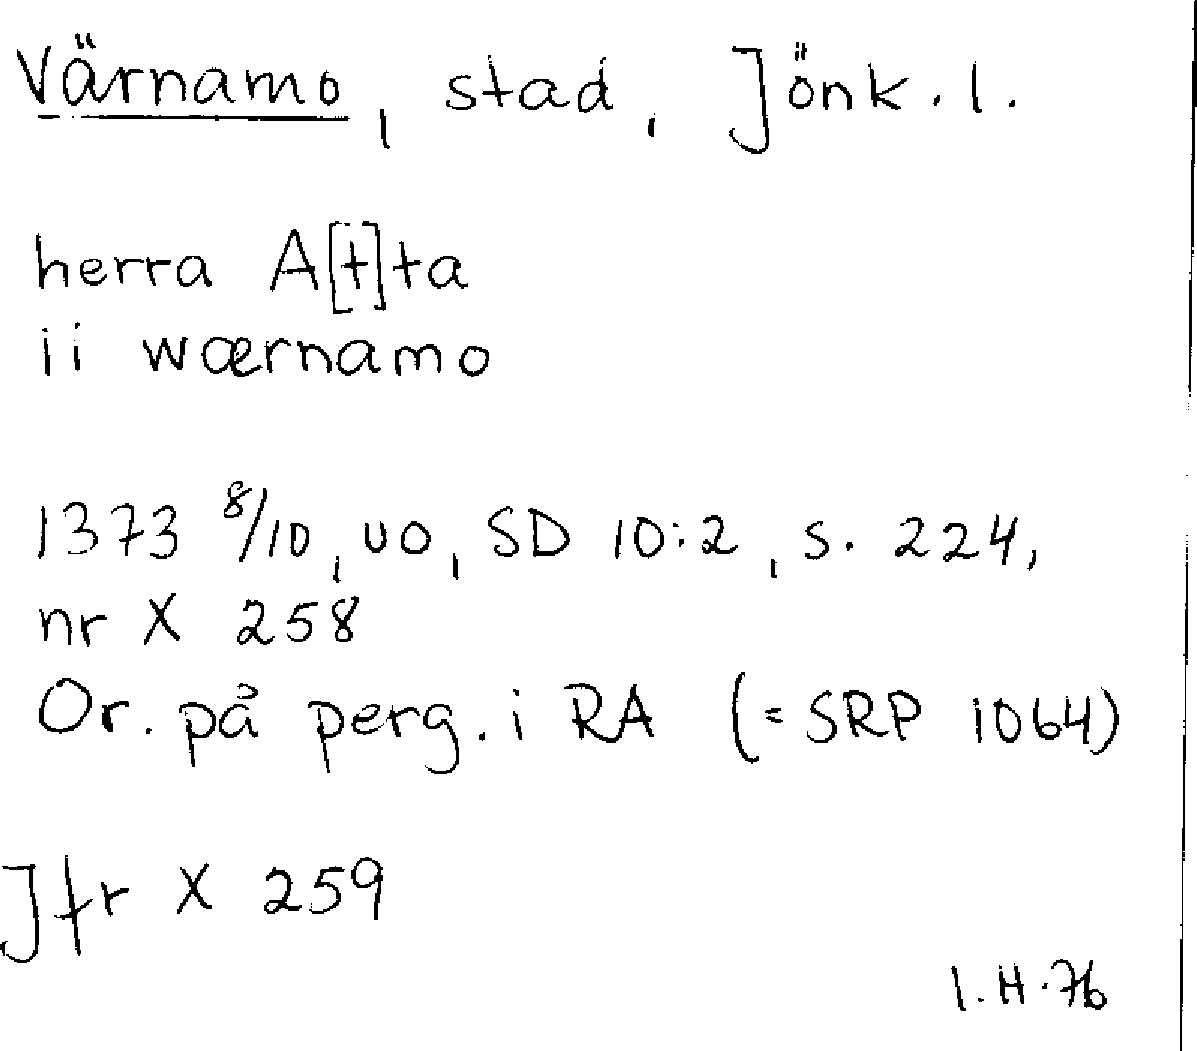 Värnamo, stad, Jönk. l.
herra A[t]ta
ii wærnamo
1373 8/10, uo, SD 10:2, s. 224,
nr X 258
Or. på perg. i RA (= SRP 1064)
Jfr X 259
I.H.76